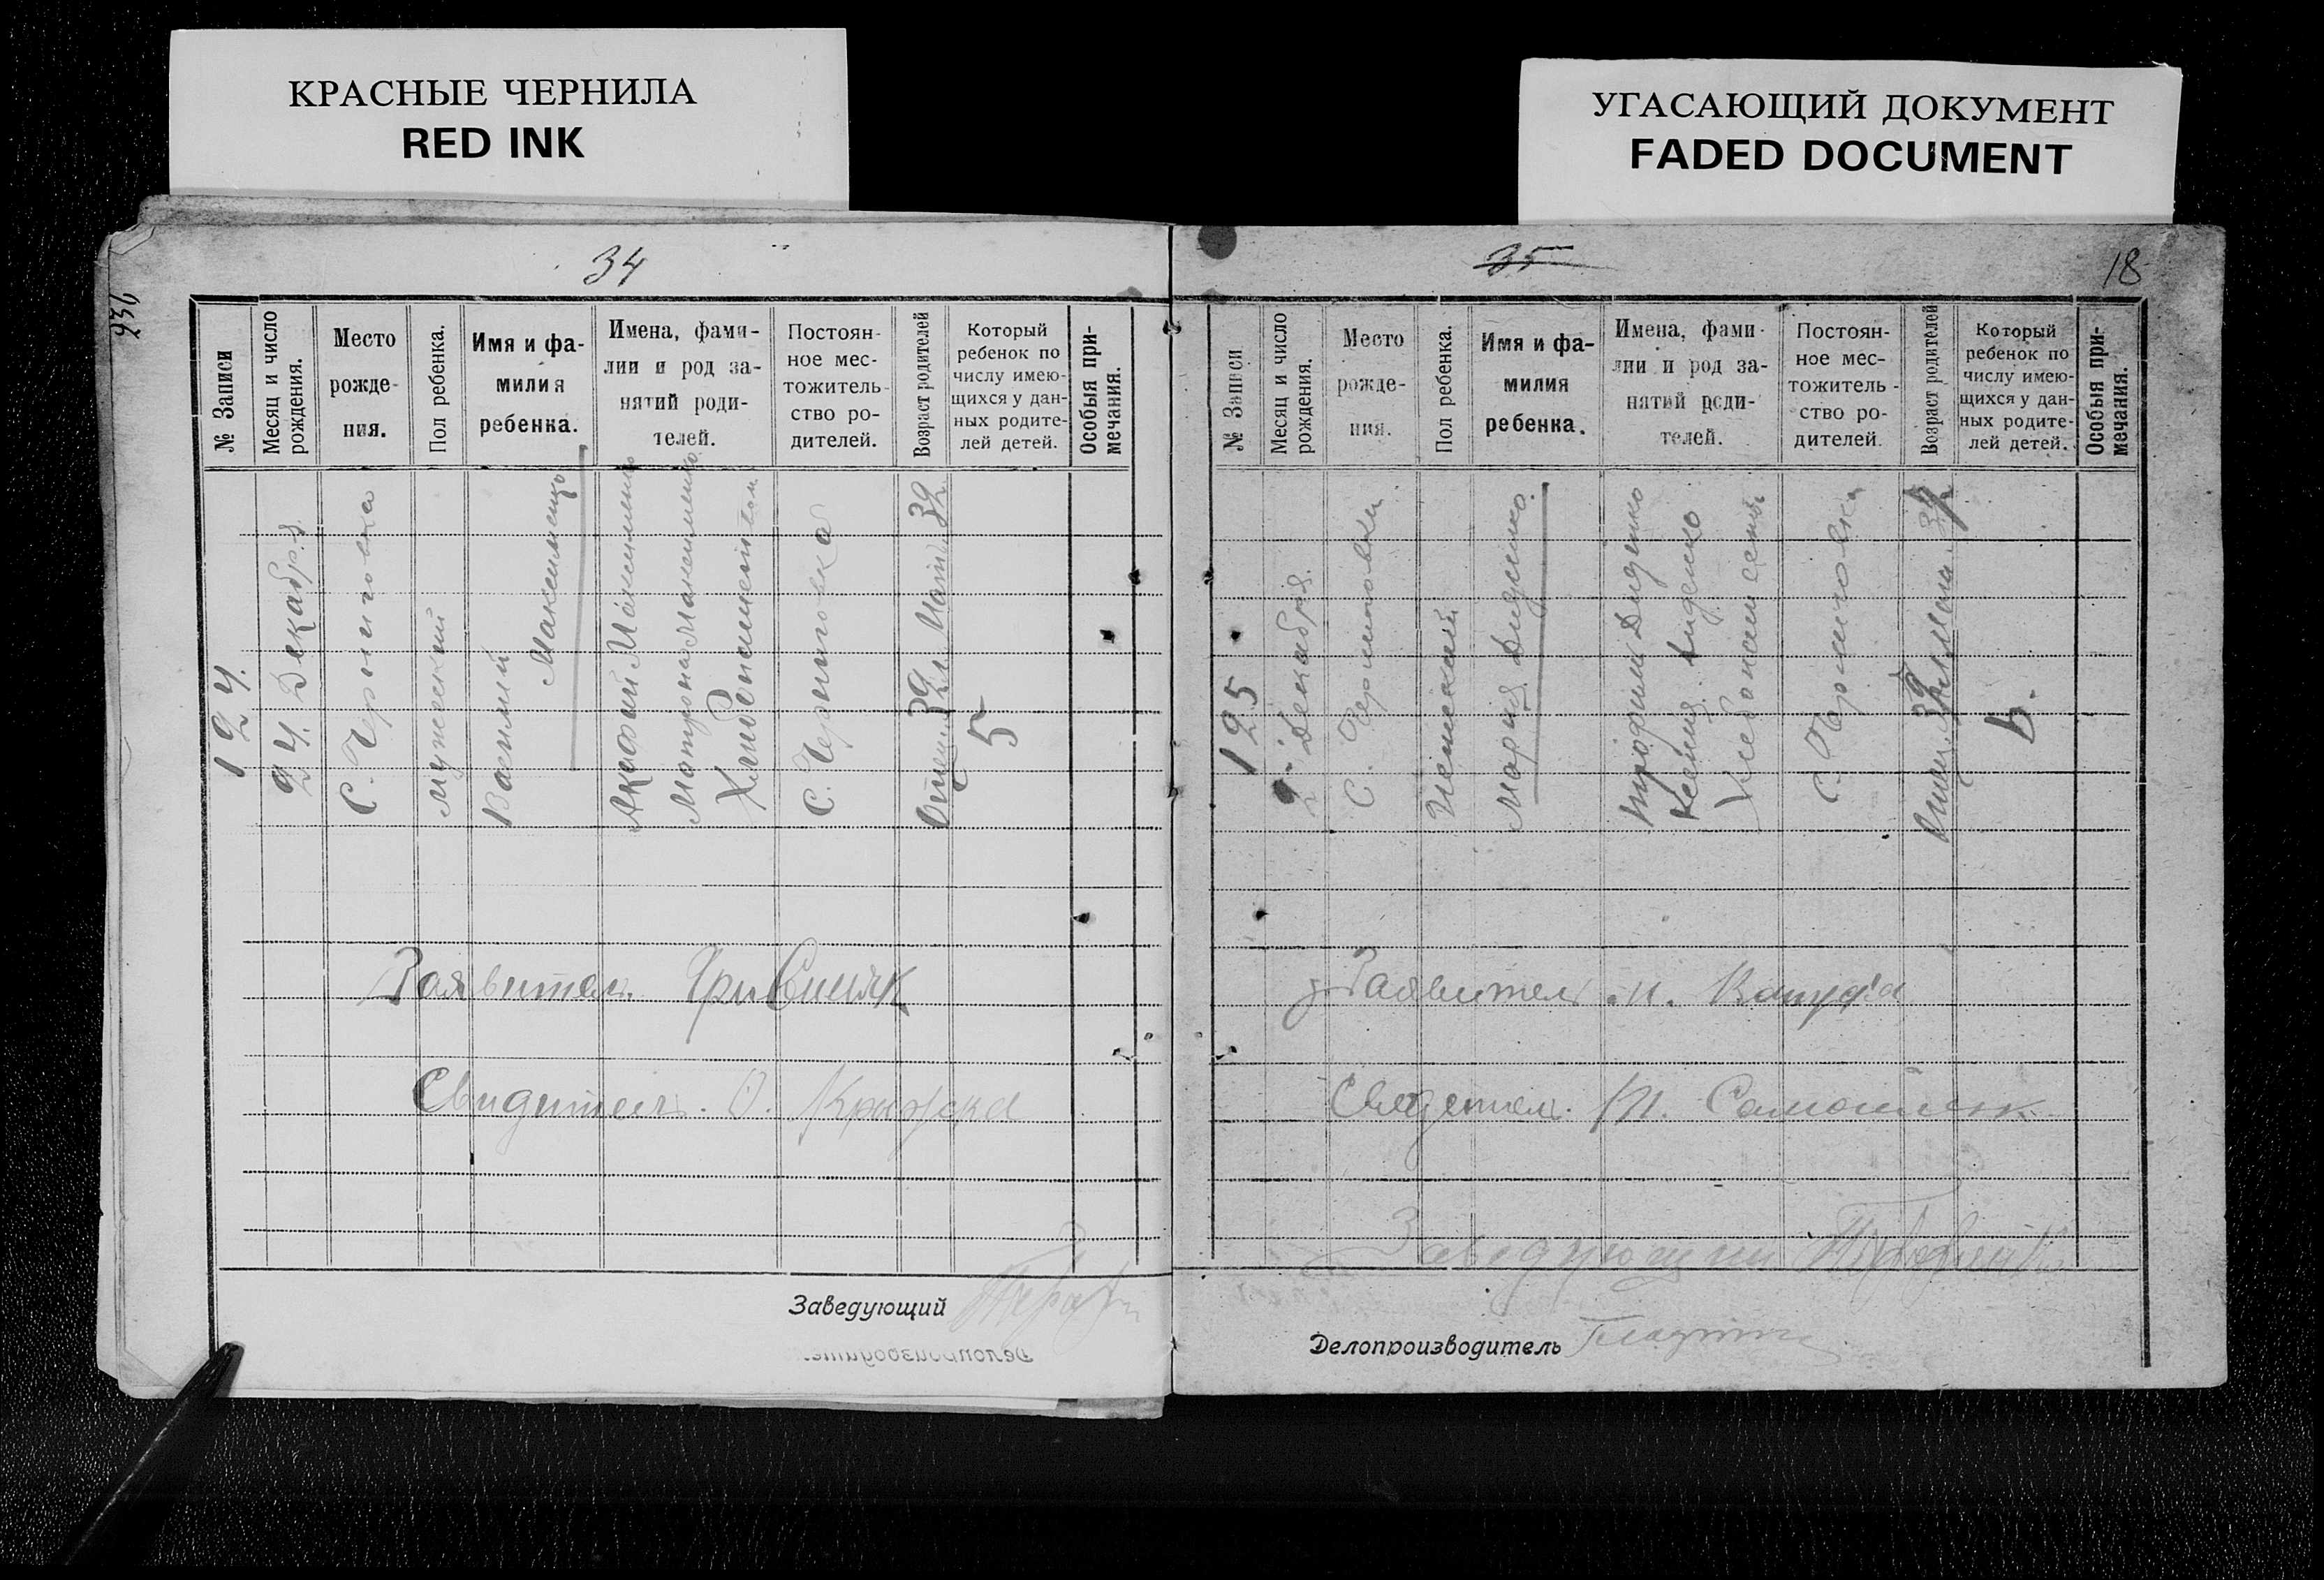 КРАСНЫЕ ЧЕРНИЛА
RED INK
УГАСАЮЩИЙ ДОКУМЕНТ
FADED DOCUMENT
34
№ Записи
Месяц и число
рождения.
Место
рожде-
ния.
Пол ребенка.
Имя и фа-
милия
ребенка.
Имена, фами-
лии и род за-
нятий роди-
телей.
Постоян-
ное мес-
тожитель-
ство ро-
дителей.
Возраст родителей
Который
ребенок по
числу имею-
щихся у дан-
ных родите-
лей детей.
Особыя при-
мечания.
124.
24. Декабря.
С. Черниговка
мужеский
Василий
Максименко
Максименко
Матрона Максименко
С. Черниговка
Отец. 39 л. Мать. 39 л.
5
Заявитель.
Свидетель. О.
Заведующий
35
18
№ Записи
Месяц и число
рождения.
Место
рожде-
ния.
Пол ребенка.
Имя и фа-
милия
ребенка.
Имена, фами-
лии и род за-
нятий роди-
телей.
Постоян-
ное мес-
тожитель-
ство ро-
дителей.
Возраст родителей
Который
ребенок по
числу имею-
щихся у дан-
ных родите-
лей детей.
Особыя при-
мечания.
125
Декабря.
С. Черниговка
Женский
Мария Диденко.
Трофим Диденко
Ксения Диденко
С. Черниговка
Заявитель
Свидетель.
Заведующий
Делопроизводитель